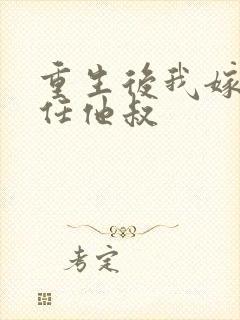 重生後我嫁
任他叔
考定